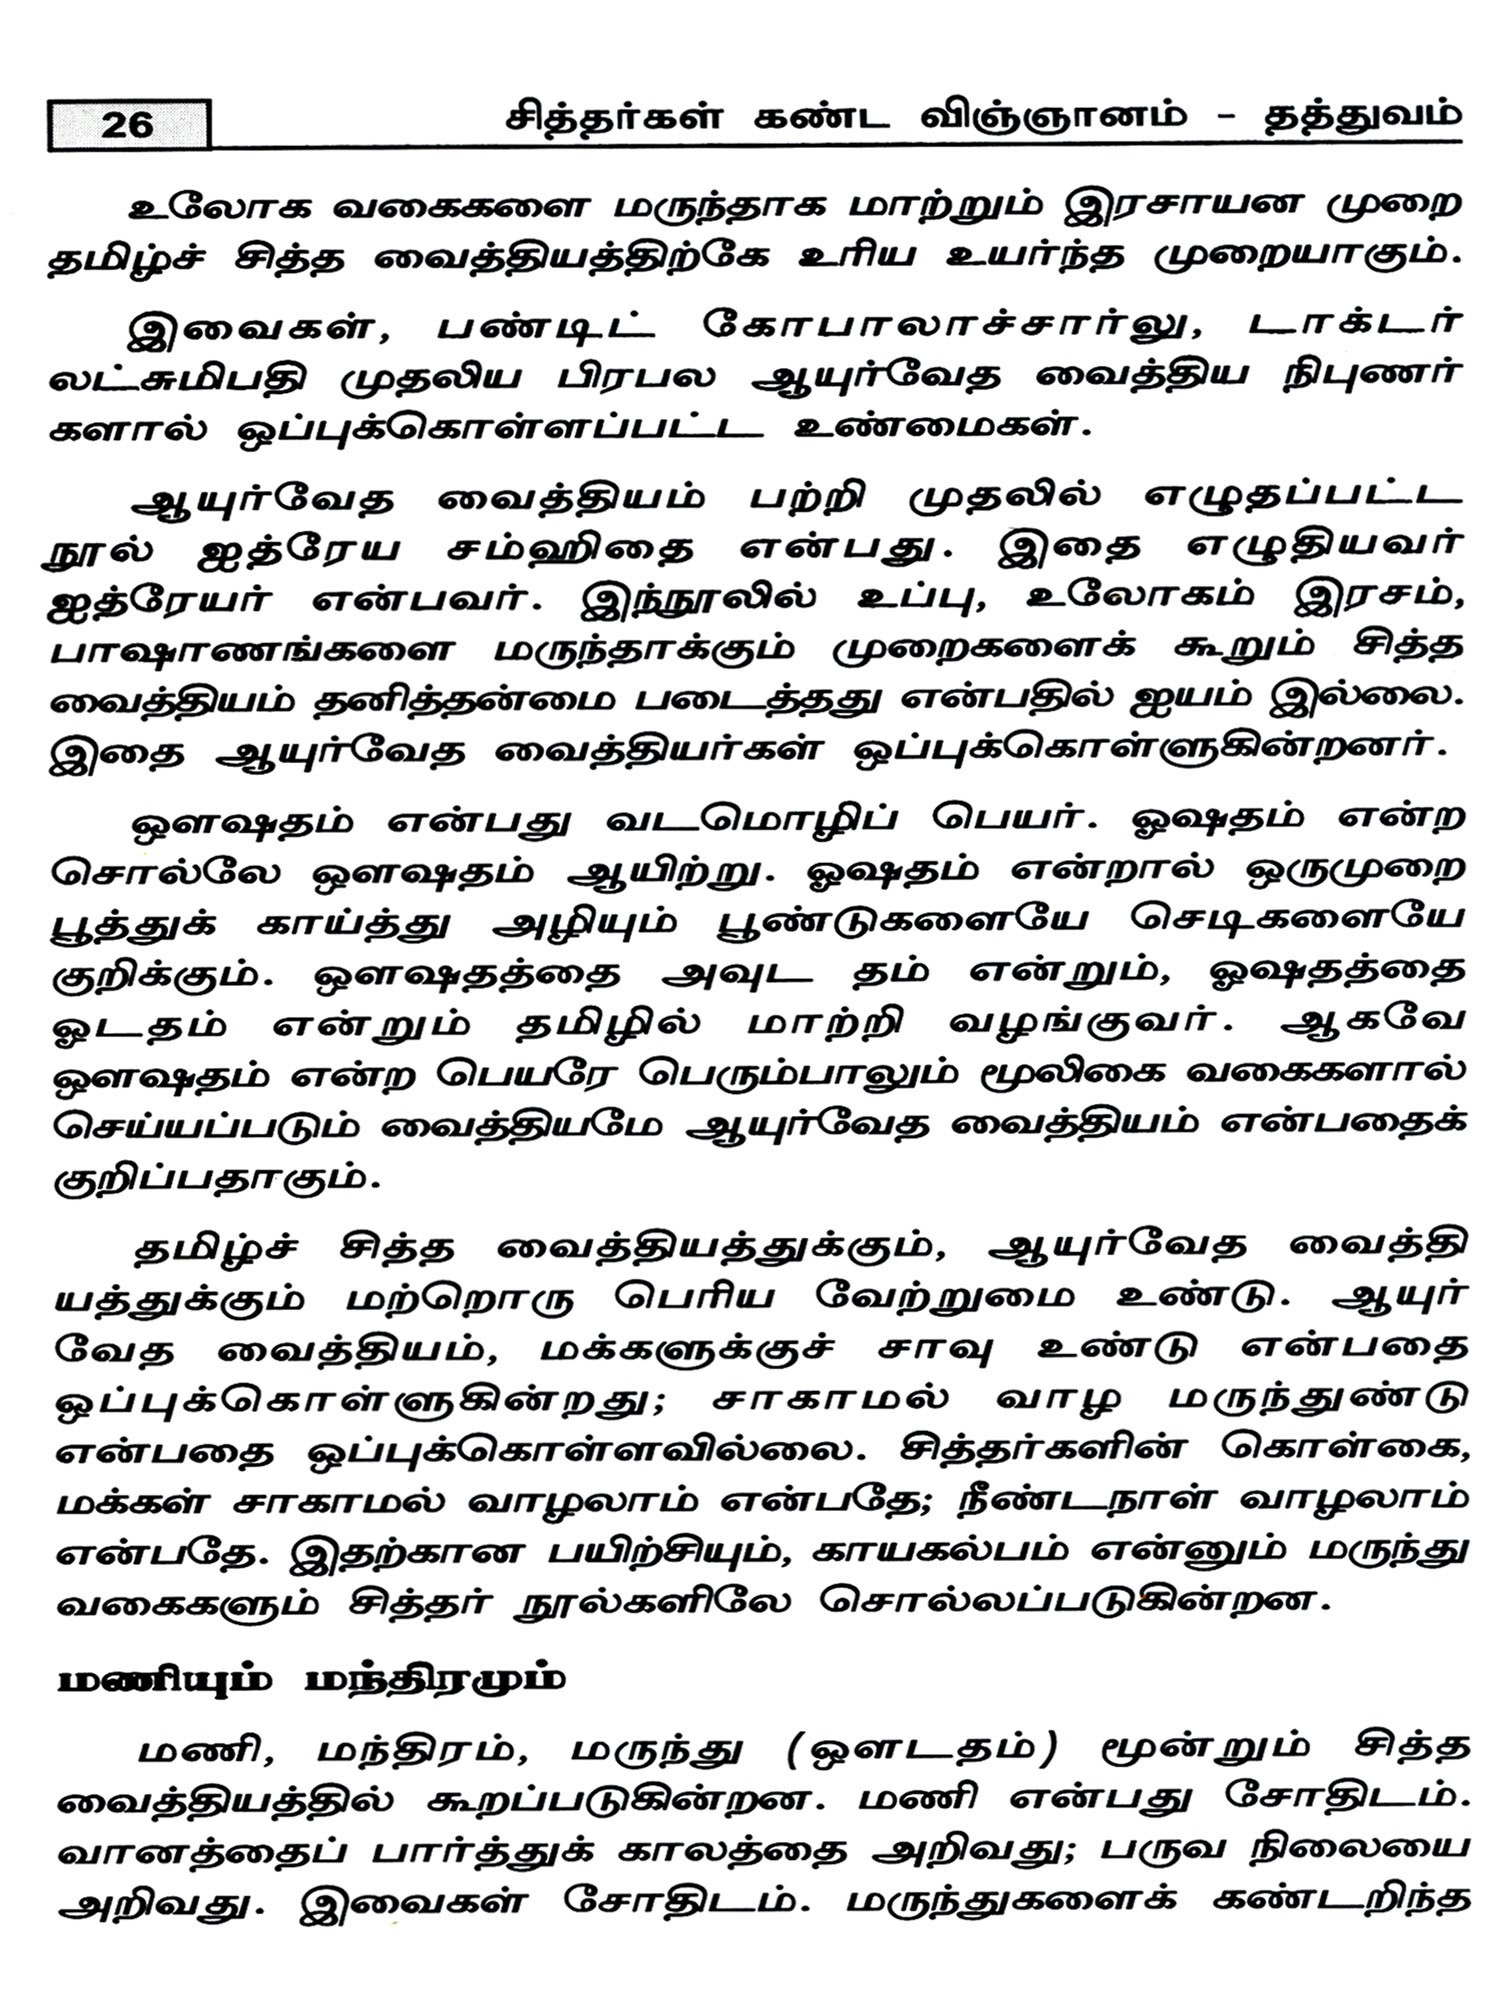 26
சித்தர்கள் கண்ட விஞ்ஞானம் - தத்துவம்
உலோக வகைகளை மருந்தாக மாற்றும் இரசாயன முறை
தமிழ்ச் சித்த வைத்தியத்திற்கே உரிய உயர்ந்த முறையாகும்.
இவைகள், பண்டிட் கோபாலாச்சார்லு, டாக்டர்
லட்சுமிபதி முதலிய பிரபல ஆயுர்வேத வைத்திய நிபுணர்
களால் ஒப்புக்கொள்ளப்பட்ட உண்மைகள்.
ஆயுர்வேத வைத்தியம் பற்றி முதலில் எழுதப்பட்ட
நூல் ஐத்ரேய சம்ஹிதை என்பது. இதை எழுதியவர்
ஐத்ரேயர் என்பவர். இந்நூலில் உப்பு, உலோகம் இரசம்,
பாஷாணங்களை மருந்தாக்கும் முறைகளைக் கூறும் சித்த
வைத்தியம் தனித்தன்மை படைத்தது என்பதில் ஐயம் இல்லை.
இதை ஆயுர்வேத வைத்தியர்கள் ஒப்புக்கொள்ளுகின்றனர்.
ஔஷதம் என்பது வடமொழிப் பெயர். ஓஷதம் என்ற
சொல்லே ஔஷதம் ஆயிற்று. ஓஷதம் என்றால் ஒருமுறை
பூத்துக் காய்த்து அழியும் பூண்டுகளையே செடிகளையே
குறிக்கும். ஔஷதத்தை அவுட தம் என்றும், ஓஷதத்தை
ஓடதம் என்றும் தமிழில் மாற்றி வழங்குவர். ஆகவே
ஔஷதம் என்ற பெயரே பெரும்பாலும் மூலிகை வகைகளால்
செய்யப்படும் வைத்தியமே ஆயுர்வேத வைத்தியம் என்பதைக்
குறிப்பதாகும்.
தமிழ்ச் சித்த வைத்தியத்துக்கும், ஆயுர்வேத வைத்தி
யத்துக்கும் மற்றொரு பெரிய வேற்றுமை உண்டு. ஆயுர்
வேத வைத்தியம், மக்களுக்குச் சாவு உண்டு என்பதை
ஒப்புக்கொள்ளுகின்றது; சாகாமல் வாழ மருந்துண்டு
என்பதை ஒப்புக்கொள்ளவில்லை. சித்தர்களின் கொள்கை,
மக்கள் சாகாமல் வாழலாம் என்பதே; நீண்டநாள் வாழலாம்
என்பதே. இதற்கான பயிற்சியும், காயகல்பம் என்னும் மருந்து
வகைகளும் சித்தர் நூல்களிலே சொல்லப்படுகின்றன.
மணியும் மந்திரமும்
மணி, மந்திரம், மருந்து (ஔடதம்) மூன்றும் சித்த
வைத்தியத்தில் கூறப்படுகின்றன. மணி என்பது சோதிடம்.
வானத்தைப் பார்த்துக் காலத்தை அறிவது; பருவ நிலையை
அறிவது. இவைகள் சோதிடம். மருந்துகளைக் கண்டறிந்த